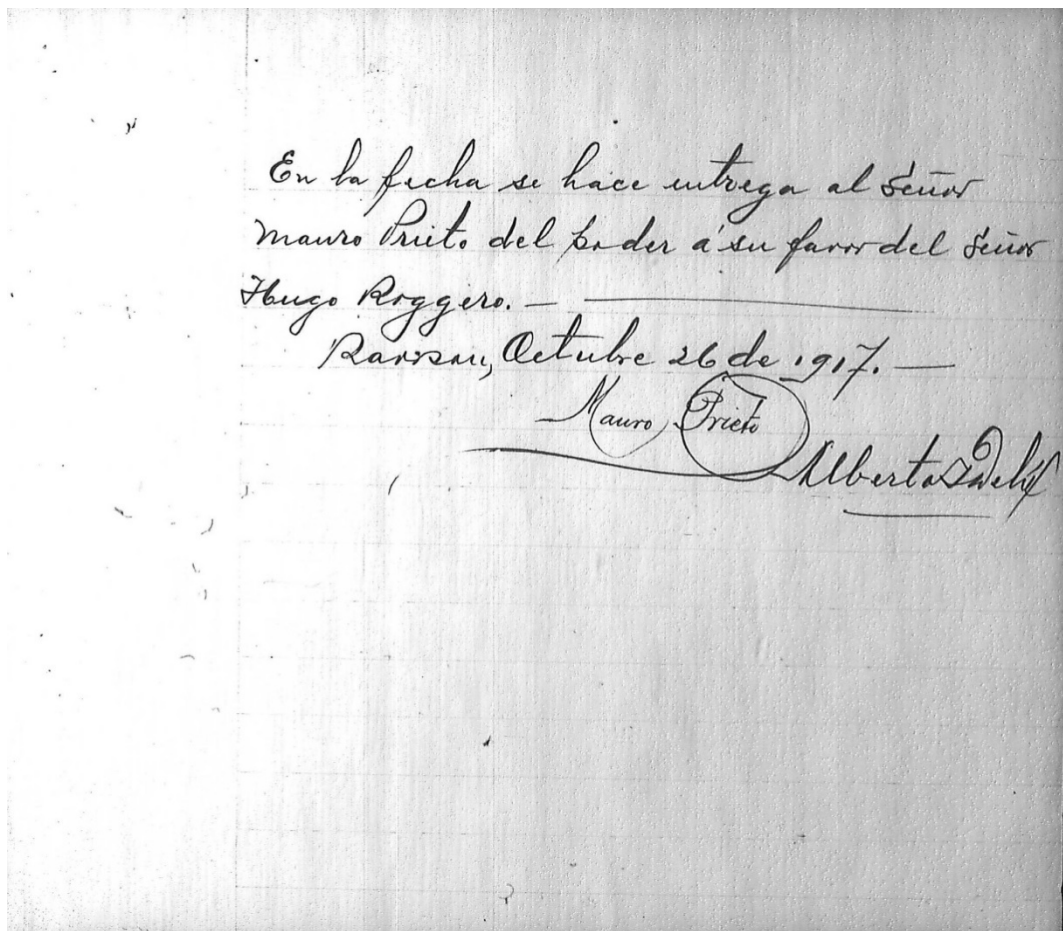 En la fecha se hace entrega al Señor
Mauro Prieto del poder á su favor del Señor
Hugo Roggero. —
Rawson, Octubre 26 de 1917. —
Mauro Prieto
Alberto